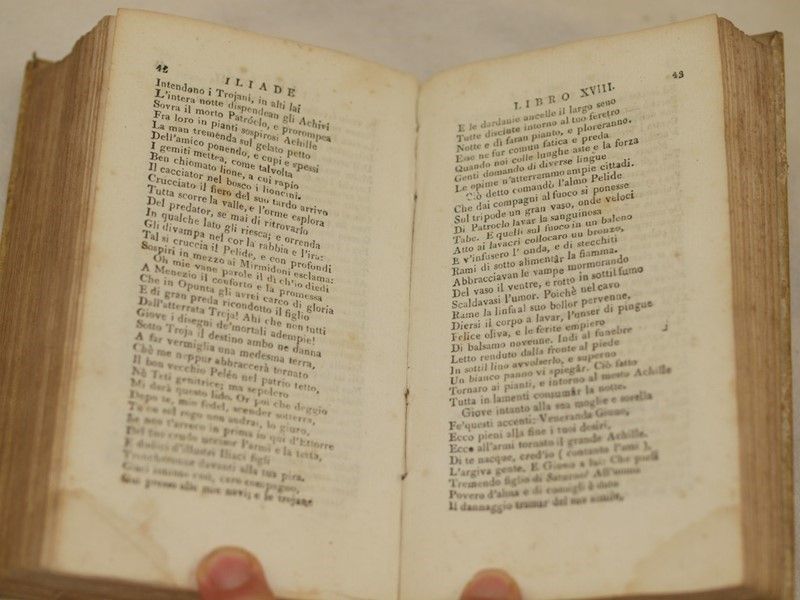 42
ILIADE
Intendono i Trojani, in alti lai
L'intera notte dispendean gli Achivi
Sovra il morto Patróclo, e prorompea
Fra loro in pianti sospirosi Achille
La man tremenda sul gelato petto
Dell'amico ponendo, e cupi e spessi
I gemiti mettea, come talvolta
Ben chiomato lione, a cui rapio
Il cacciator nel bosco i lioncini.
Crucciato il fiero del suo tardo arrivo
Tutta scorre la valle, e l'orme esplora
Del predator, se mai di ritrovarlo
In qualche lato gli riesca; e orrenda
Gli divampa nel cor la rabbia e l'ira:
Tal si cruccia il Pelide, e con profondi
Sospiri in mezzo ai Mirmidoni esclama:
Oh mie vane parole il dì ch'io diedi
A Menezio il conforto e la promessa
Che in Opunta gli avrei carco di gloria
E di gran preda ricondotto il figlio
Dall'atterrata Troja! Ahi che non tutti
Giove i disegni de'mortali adempie!
Sotto Troja il destino ambo ne danna
A far vermiglia una medesma terra,
Chè me neppur abbraccerà tornato
Il buon vecchio Peléo nel patrio tetto,
Nè Teti genitrice; ma sepolcro
Mi darà questo lido. Or poi che deggio
Dopo te, mio fedel, scender sotterra,
Tu co sul rogo non andrai, lo giuro,
Se non t'arreco in prima in qui d'Ettorre
Del tuo crudo uccisor l'armi e la testa,
E dodici d'illustri Iliaci figli
Troncheronne davanti alla tua pira.
Giaci intanto così, caro compagno,
presso alle mie navi; e le trojane
43
LIBRO XVIII.
E le dardanie ancelle il largo seno
Tutte discinte intorno al tuo feretro
Notte e dì faran pianto, e ploreranno.
Esse ne fur comun fatica e preda
Quando noi colle lunghe aste e la forza
Genti domando di diverse lingue
Le opime n'atterrammo ampie cittadi.
Ciò detto comandò l'almo Pelide
Che dai compagni al fuoco si ponesse
Sul tripode un gran vaso, onde veloci
Di Patroclo lavar la sanguinosa
Tabe. E quelli sul fuoco in un baleno
Atto ai lavacri collocaro un bronzo,
E v'infusero l'onda, e di stecchiti
Rami di sotto alimentâr la fiamma.
Abbracciavan le vampe mormorando
Del vaso il ventre, e rotto in sottil fumo
Scaldavasi l'umor. Poichè nel cavo
Rame la linfa al suo bollor pervenne,
Diersi il corpo a lavar, l'unser di pingue
Felice oliva, e le ferite empiero
Di balsamo novenne. Indi al funebre
Letto renduto dalla fronte al piede
In sottil lino avvolserlo, e superno
Un bianco panno vi spiegâr. Ciò fatto
Tornaro ai pianti, e intorno al mesto Achille
Tutta in lamenti consumâr la notte.
Giove intanto alla sua moglie e sorella
Fe'questi accenti: Veneranda Giuno,
Ecco pieni alla fine i tuoi desiri,
Ecco all'armi tornato il grande Achille.
Di te nacque, cred'io (cotanto l'ami),
L'argiva gente. E Giuno a lui: Che parli
Tremendo figlio di Saturno? All'uomo
Povero d'alma e di consigli è dato
Il dannaggio tramar del suo simile,